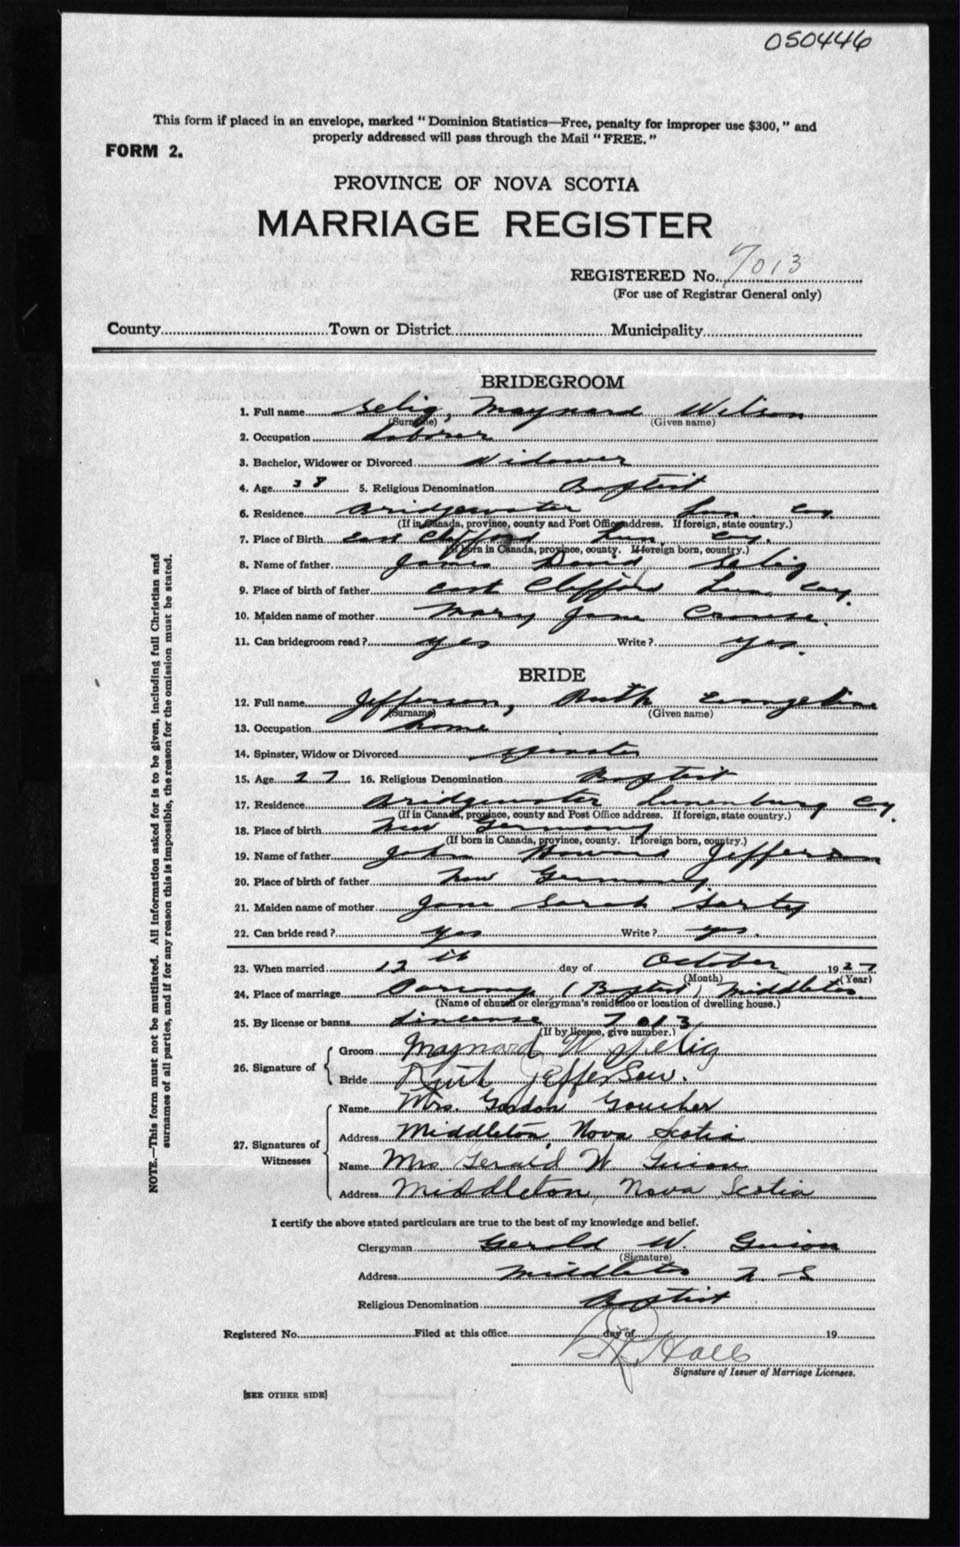 050446
This form if placed in an envelope, marked "Dominion Statistics—Free, penalty for improper use $300," and
properly addressed will pass through the Mail "FREE."
FORM 2.
PROVINCE OF NOVA SCOTIA
MARRIAGE REGISTER
REGISTERED No. 7013
(For use of Registrar General only)
County Town or District Municipality
BRIDEGROOM
1. Full name Selig, Maynard Wilson
(Surname) (Given name)
2. Occupation Laborer
3. Bachelor, Widower or Divorced Widower
4. Age 38 5. Religious Denomination Baptist
6. Residence Bridgewater Lun. Coy.
(If in Canada, province, county and Post Office address. If foreign, state country.)
7. Place of Birth East Clifford Lun. Coy.
(If born in Canada, province, county. If foreign born, country.)
8. Name of father James David Selig
9. Place of birth of father East Clifford Lun. Coy.
10. Maiden name of mother Mary Jane Crouse.
11. Can bridegroom read? yes Write? yes.
BRIDE
12. Full name Jefferson, Ruth Evangeline
(Surname) (Given name)
13. Occupation home
14. Spinster, Widow or Divorced spinster
15. Age 27 16. Religious Denomination Baptist
17. Residence Bridgewater Lunenburg Coy.
(If in Canada, province, county and Post Office address. If foreign, state country.)
18. Place of birth New Germany
(If born in Canada, province, county. If foreign born, country.)
19. Name of father John Howard Jefferson
20. Place of birth of father New Germany
21. Maiden name of mother Jane Sarah Sarty
22. Can bride read? yes Write? yes.
23. When married 12th day of October 1927
(Month) (Year)
24. Place of marriage Parsonage (Baptist) Middleton.
(Name of church or clergyman's residence or location of dwelling house.)
25. By license or banns Lincense 7013
(If by license, give number.)
26. Signature of Groom Maynard W Selig
Bride Ruth Jefferson.
27. Signatures of Witnesses
Name Mrs. Gordon Goucher
Address Middleton, Nova Scotia
Name Mrs Gerald W Guion
Address Middleton, Nova Scotia
I certify the above stated particulars are true to the best of my knowledge and belief.
Clergyman Gerald W. Guion
(Signature)
Address Middleton N.S
Religious Denomination Baptist
Registered No. Filed at this office day of 19
Hall
Signature of Issuer of Marriage Licenses.
[SEE OTHER SIDE]
NOTE.—This form must not be mutilated. All information asked for is to be given, including full Christian and
surnames of all parties, and if for any reason this is impossible, the reason for the omission must be stated.